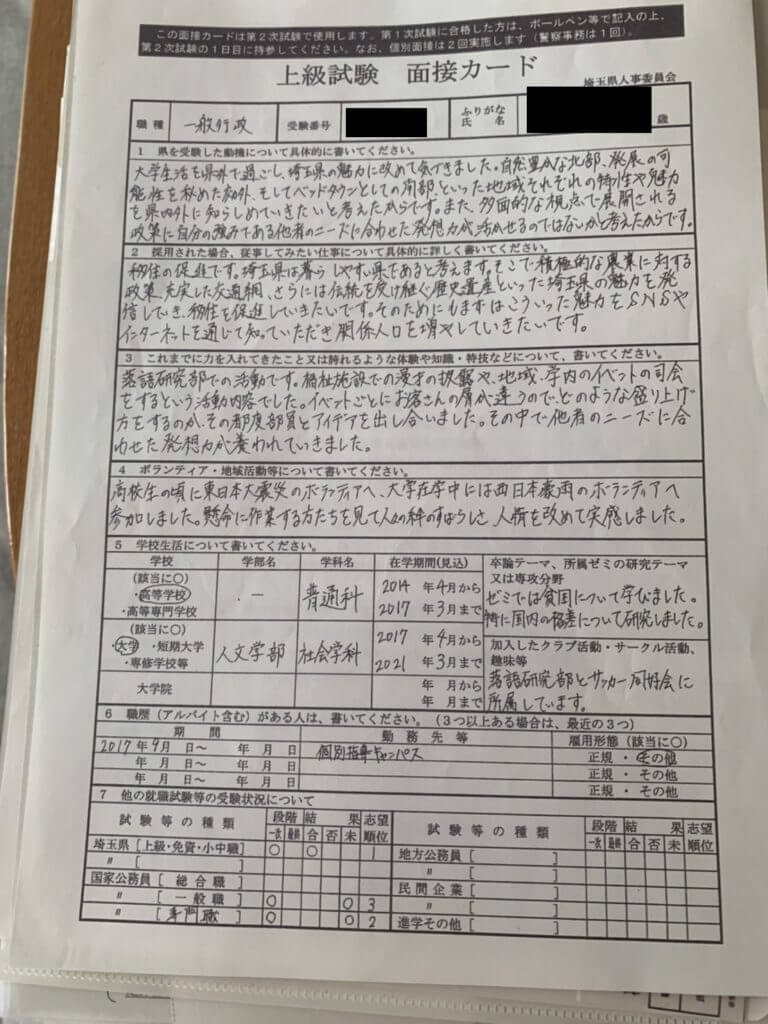 この面接カードは第２次試験で使用します。第１次試験に合格した方は、ボールペン等で記入の上、
第２次試験の１日目に持参してください。なお、個別面接は２回実施します（警察事務は１回）。
上級試験　面接カード
埼玉県人事委員会
職種　一般行政　受験番号　ふりがな
氏名　歳
1　県を受験した動機について具体的に書いてください。
大学生活を県外で過ごし、埼玉県の魅力に改めて気づきました。自然豊かな北部、発展の可
能性を秘めた郊外、そしてベッドタウンとしての南部、といった地域それぞれの特性や魅力
を県内外に知らしめていきたいと考えたからです。また、多面的な視点で展開される
政策に自分の強みである他者のニーズに合わせた発想力が活かせるのではないかと考えたからです。
2　採用された場合、従事してみたい仕事について具体的に詳しく書いてください。
移住の促進です。埼玉県は暮らしやすい県であると考えます。そこで積極的な農業に対する
政策、充実した交通網、さらには伝統を受け継ぐ歴史遺産といった埼玉県の魅力を発
信していき、移住を促進していきたいです。そのためにもまずはこういった魅力をSNSや
インターネットを通じて知っていただき関係人口を増やしていきたいです。
3　これまでに力を入れてきたこと又は誇れるような体験や知識・特技などについて、書いてください。
落語研究部での活動です。福祉施設での漫才の披露や、地域、学内のイベントの司会
をするという活動内容でした。イベントごとにお客さんの層が違うので、どのような盛り上げ
方をするのか、その都度部員とアイデアを出し合いました。その中で他者のニーズに合
わせた発想力が養われていきました。
4　ボランティア・地域活動等について書いてください。
高校生の頃に東日本大震災のボランティアへ、大学在学中には西日本豪雨のボランティアへ
参加しました。懸命に作業する方たちを見て人々の絆のすばらしさ、人情を改めて実感しました。
5　学校生活について書いてください。
学校　学部名　学科名　在学期間(見込)　卒論テーマ、所属ゼミの研究テーマ
又は専攻分野
(該当に○)
・高等学校　・－　普通科　2014 年4月から
・高等専門学校　2017 年3月まで
ゼミでは貧困について学びました。
特に国内の格差について研究しました。
(該当に○)
・大学・短期大学　人文学部　社会学科　2017 年4月から
・専修学校等　2021 年3月まで
加入したクラブ活動・サークル活動、
趣味等
大学院　年　月から
年　月まで
落語研究部とサッカー同好会に
所属しています。
6　職歴（アルバイト含む）がある人は、書いてください。（３つ以上ある場合は、最近の３つ）
期間　勤務先等　雇用形態（該当に○）
2017年9月　日～　年　月　日　個別指導キャンパス　正規・その他
年　月　日～　年　月　日　正規・その他
年　月　日～　年　月　日　正規・その他
7　他の就職試験等の受験状況について
試験等の種類　段階　結果　志望
一次　最終　合　否　未　順位
試験等の種類　段階　結果　志望
一次　最終　合　否　未　順位
埼玉県［上級・免資・小中職］　○　○　1
〃［　］
国家公務員［総合職］
〃［一般職］　○　○　3
〃［専門職］　○　○　2
地方公務員［　］
〃［　］
民間企業［　］
〃［　］
進学その他［　］